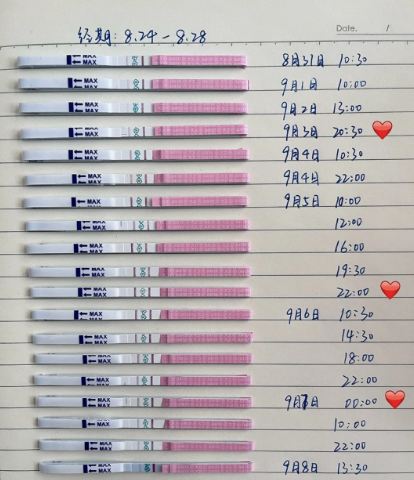 Date. /
经期: 8.24 - 8.28
MAX MAX 8月31日 10:30
MAX MAX 9月1日 10:00
MAX MAX 9月2日 13:00
MAX MAX 9月3日 20:30
MAX MAX 9月4日 10:30
MAX MAX 9月4日 22:00
MAX MAX 9月5日 10:00
MAX MAX 12:00
MAX MAX 16:00
MAX MAX 19:30
MAX MAX 22:00
MAX MAX 9月6日 10:30
MAX MAX 14:30
MAX MAX 18:00
MAX MAX 22:00
MAX MAX 9月7日 00:00
MAX MAX 10:00
MAX MAX 22:00
MAX MAX 9月8日 13:30